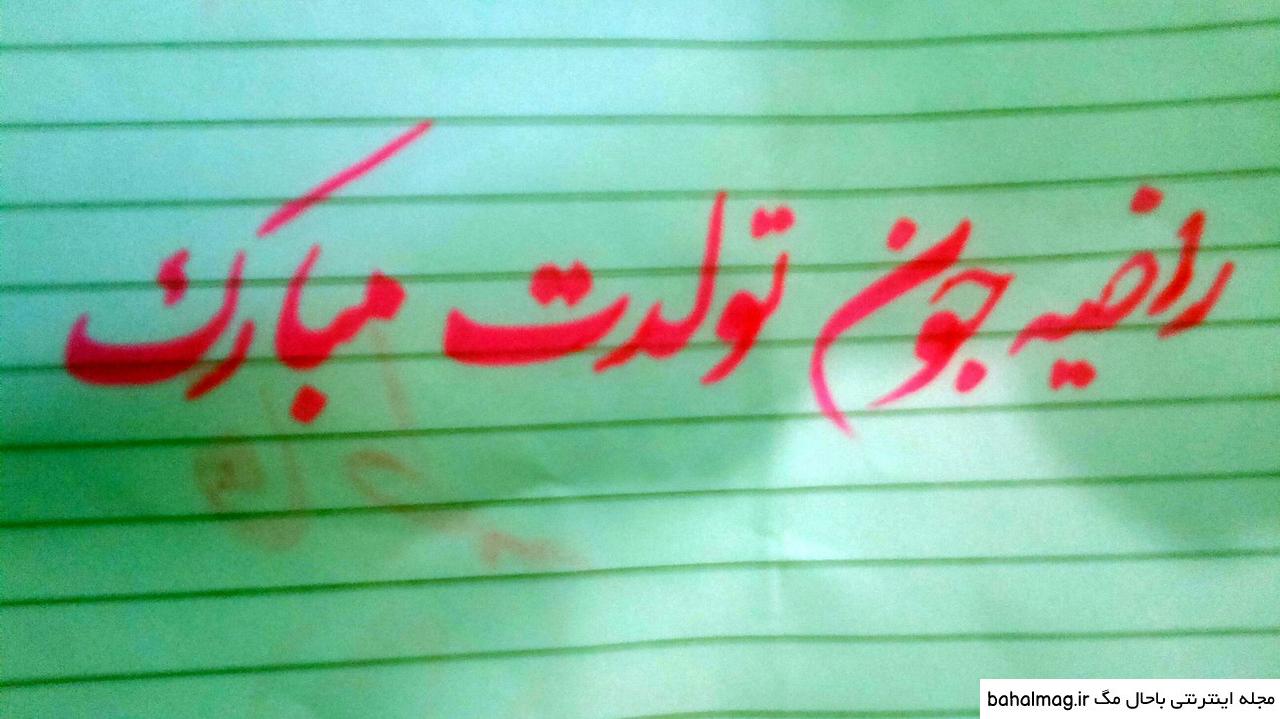 راضیه جون تولدت مبارک
مجله اینترنتی باحال مگ bahalmag.ir